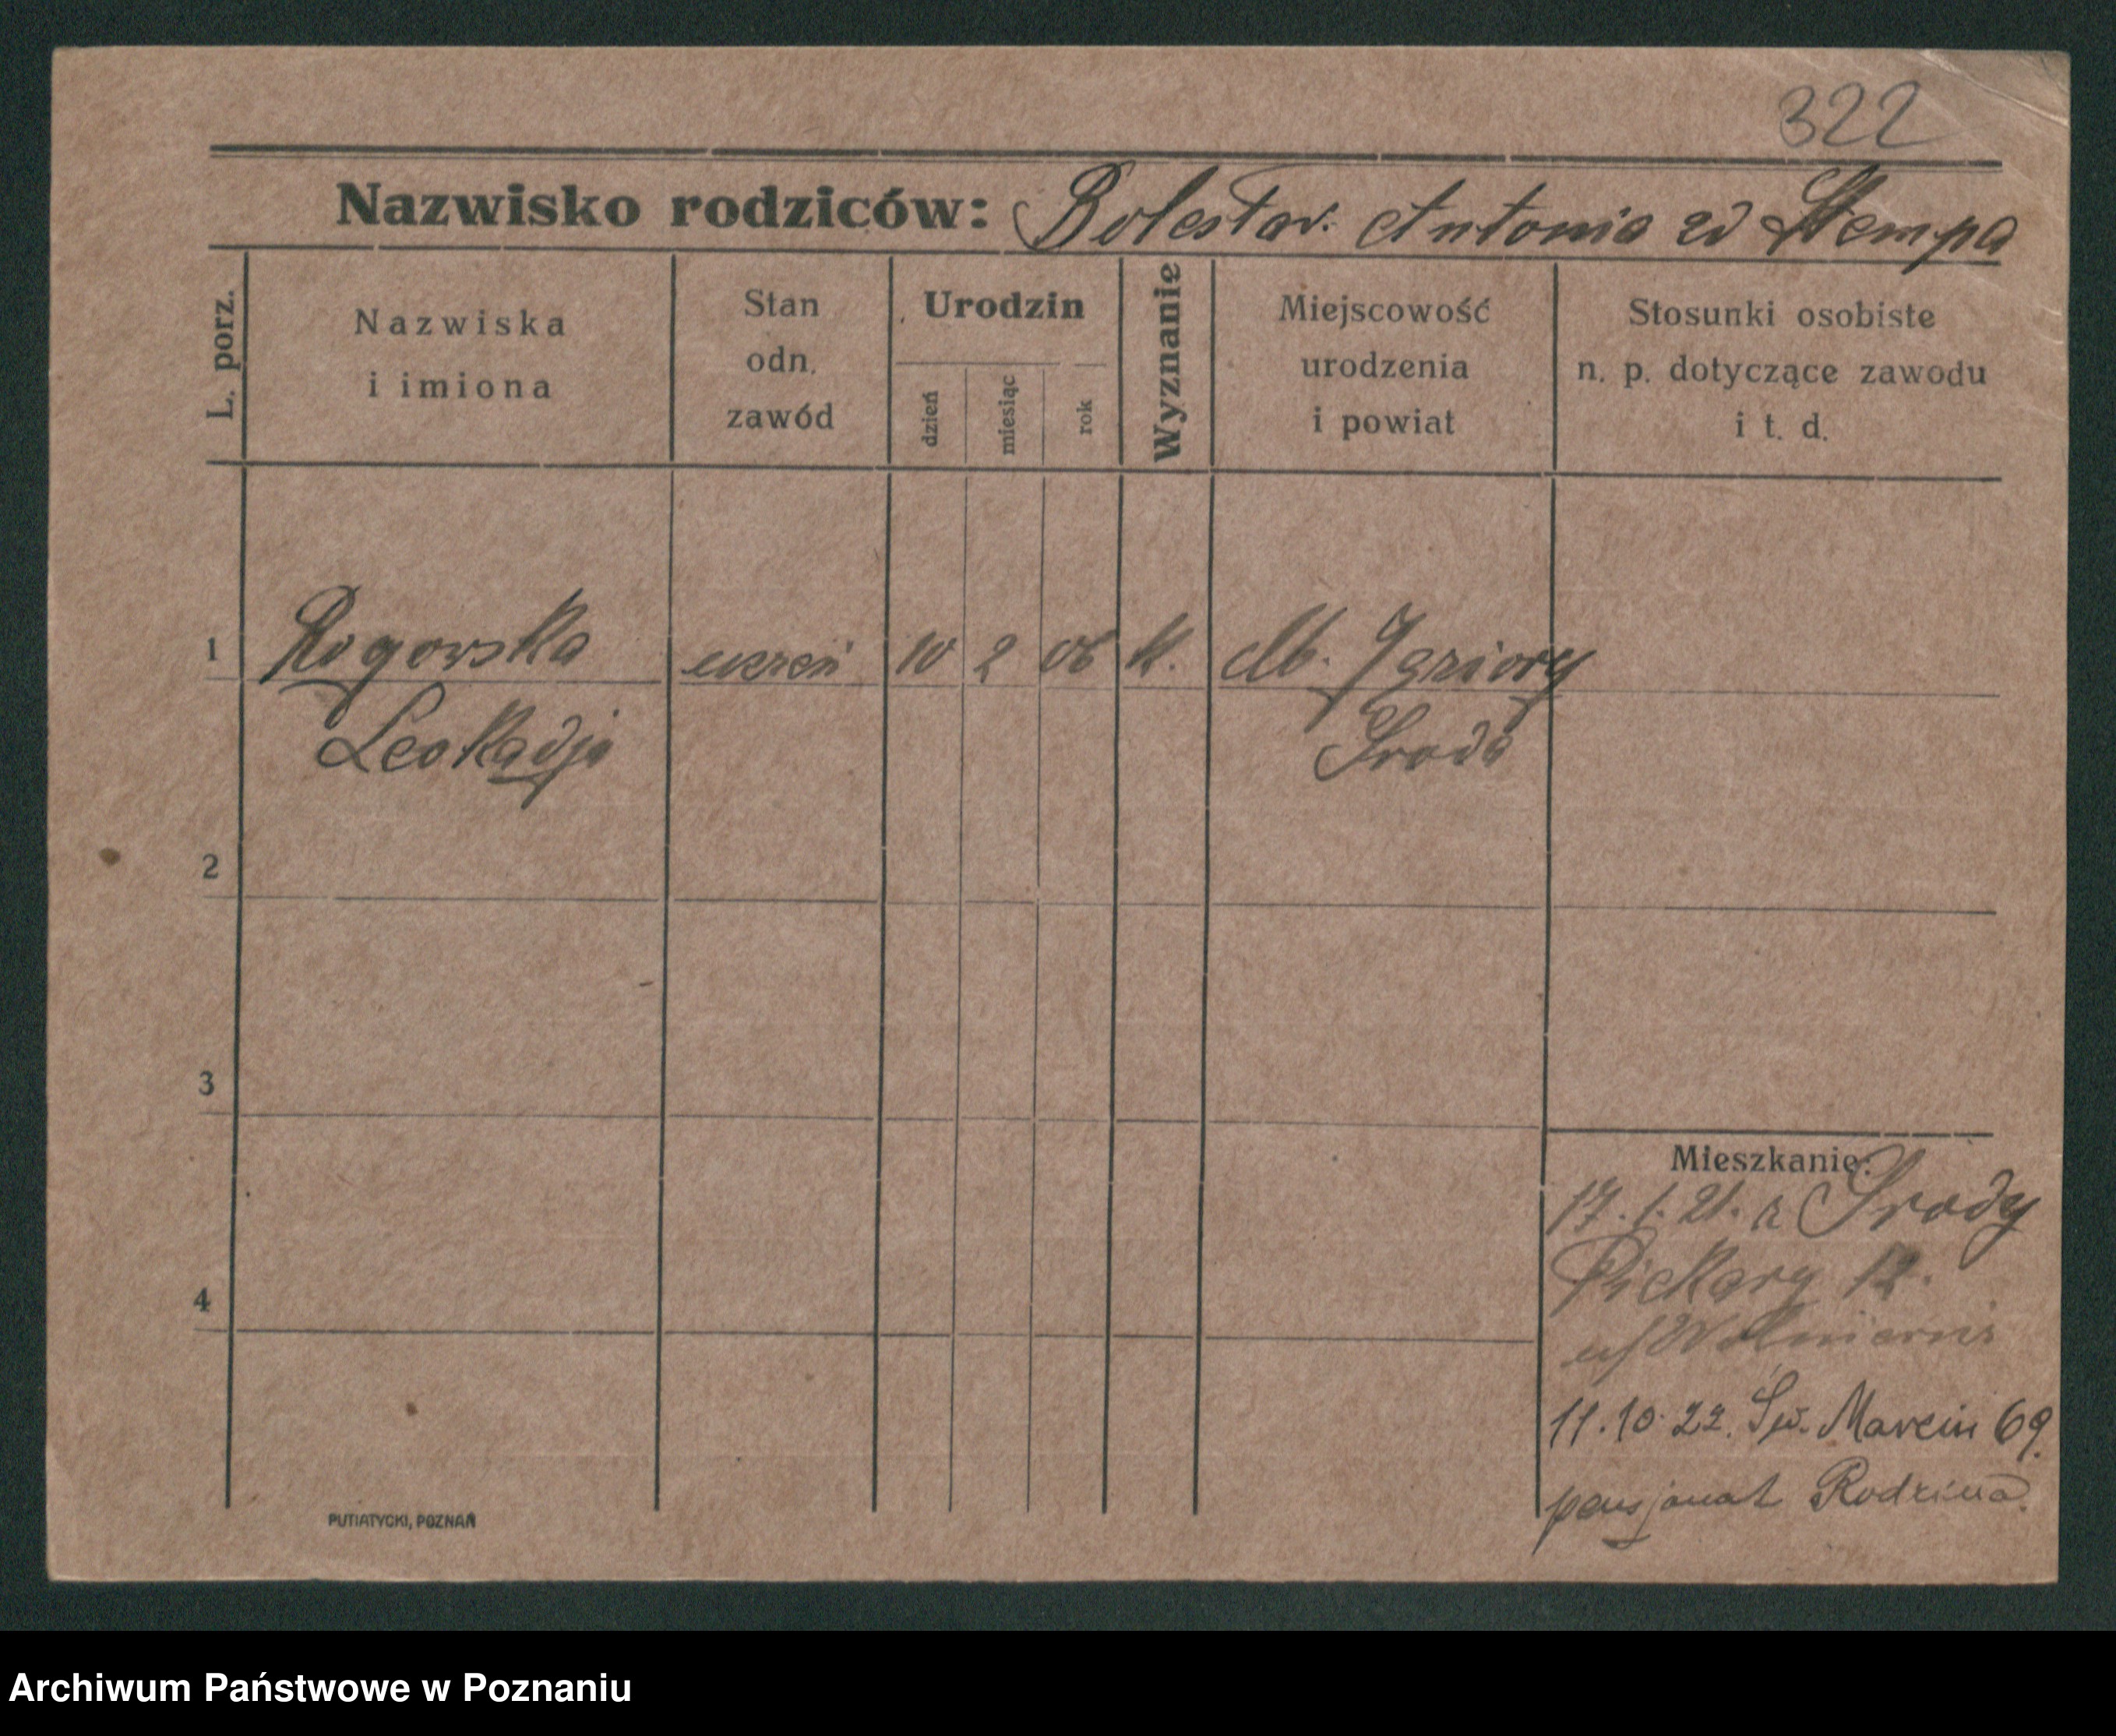 322
Nazwisko rodziców: Bolesław. Antonia zd Stempa
L. porz.
Nazwiska
i imiona
Stan
odn.
zawód
Urodzin
dzień
miesiąc
rok
Wyznanie
Miejscowość
urodzenia
i powiat
Stosunki osobiste
n. p. dotyczące zawodu
i t. d.
1 Rogowska uczeń 10 2 06 k. Mł. Jeziory
Leokadja Środa
2
3
4
Mieszkanie:
17. 1. 21. z Środy
Piekary 12.
11. 10. 22. Św. Marcin 69.
pensjonat Rodzina.
PUTIATYCKI, POZNAŃ
Archiwum Państwowe w Poznaniu